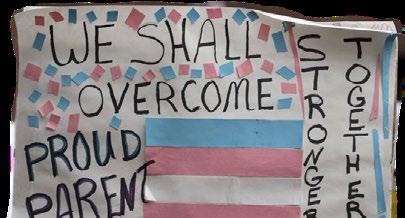 WE SHALL
OVERCOME
PROUD
PARENT
STRONGER
TOGETHER